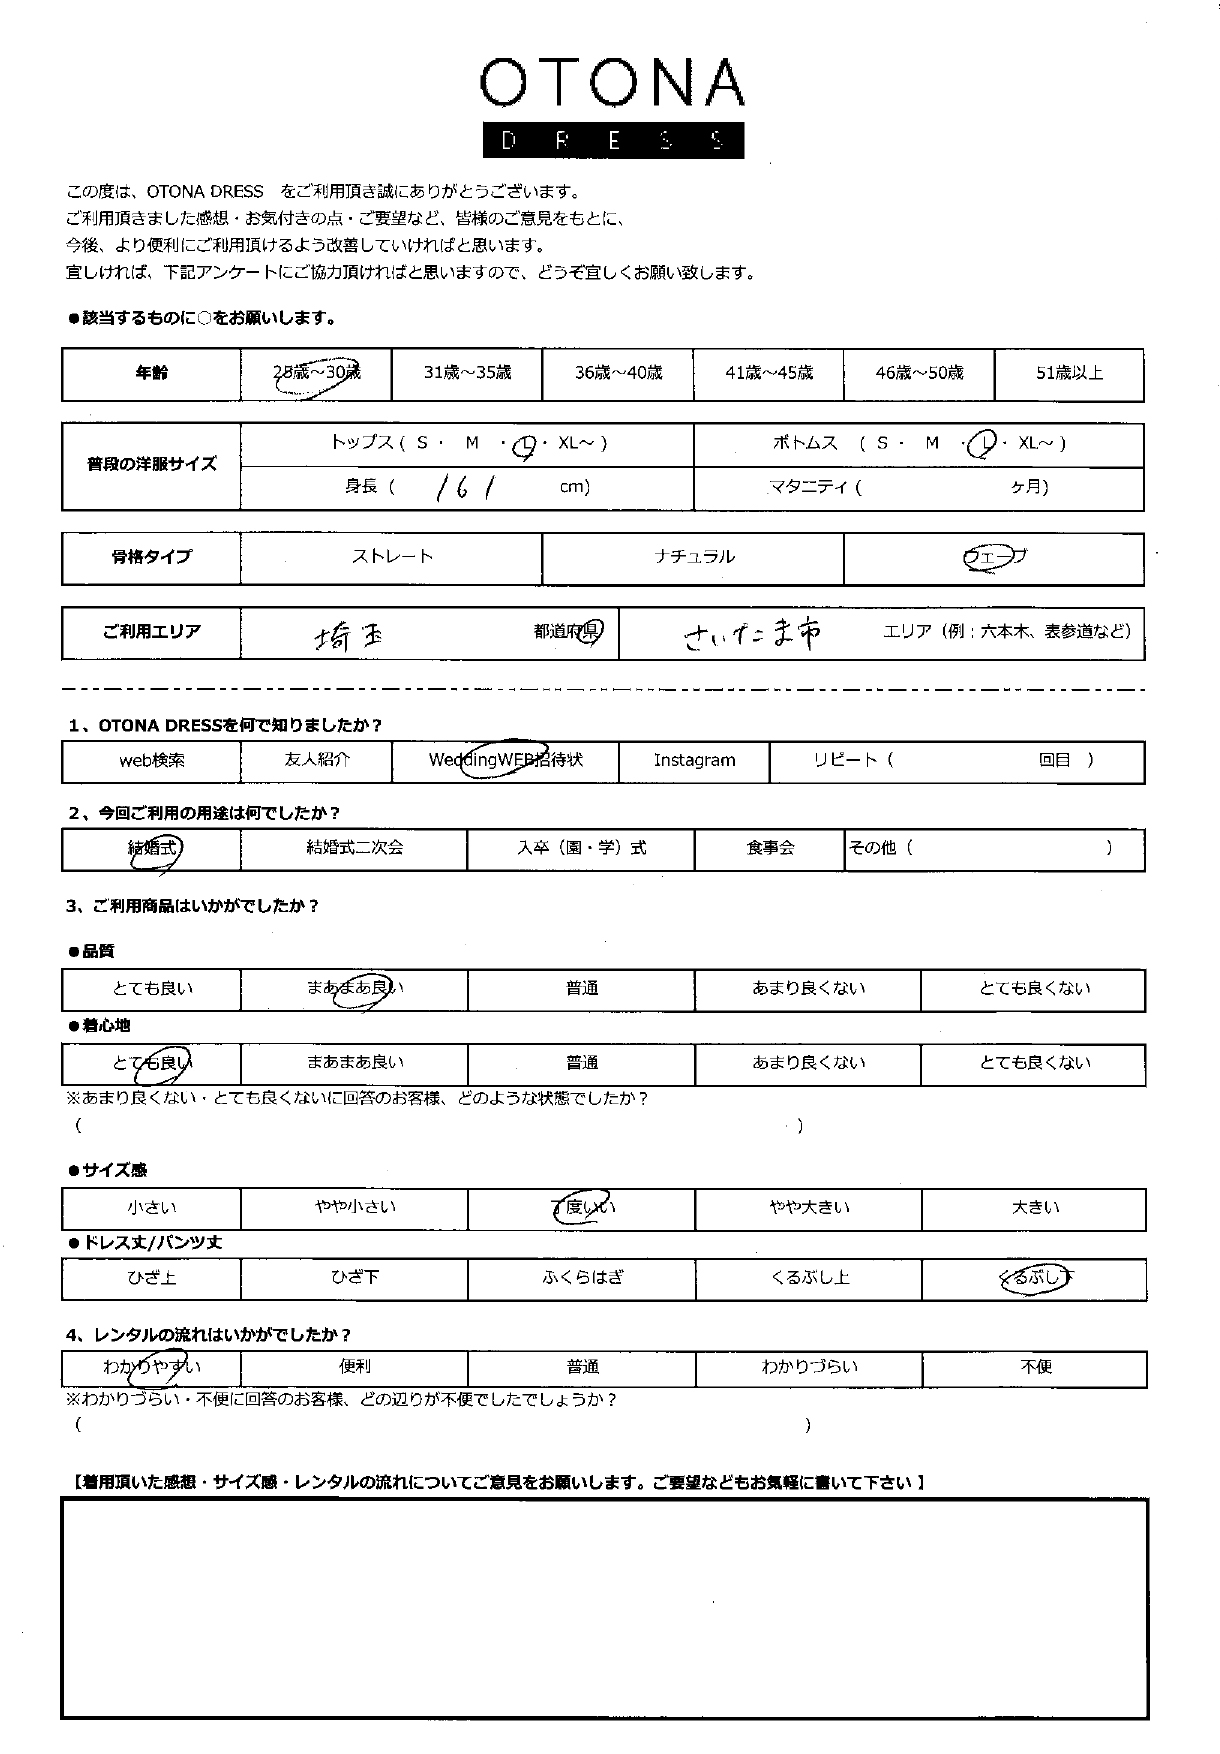 OTONA
DRESS
この度は、OTONA DRESS　をご利用頂き誠にありがとうございます。
ご利用頂きました感想・お気付きの点・ご要望など、皆様のご意見をもとに、
今後、より便利にご利用頂けるよう改善していければと思います。
宜しければ、下記アンケートにご協力頂ければと思いますので、どうぞ宜しくお願い致します。
●該当するものに○をお願いします。
年齢 28歳～30歳 31歳～35歳 36歳～40歳 41歳～45歳 46歳～50歳 51歳以上
普段の洋服サイズ トップス ( S ・ M ・ L ・ XL～ ) ボトムス ( S ・ M ・ L ・ XL～ )
身長 ( 161 cm) マタニティ ( ケ月)
骨格タイプ ストレート ナチュラル ウェーブ
ご利用エリア 埼玉 都道府県 さいたま市 エリア（例：六本木、表参道など）
1、OTONA DRESSを何で知りましたか？
web検索 友人紹介 WeddingWEB招待状 Instagram リピート（ 回目 ）
2、今回ご利用の用途は何でしたか？
結婚式 結婚式二次会 入卒（園・学）式 食事会 その他（ ）
3、ご利用商品はいかがでしたか？
●品質
とても良い まあまあ良い 普通 あまり良くない とても良くない
●着心地
とても良い まあまあ良い 普通 あまり良くない とても良くない
※あまり良くない・とても良くないに回答のお客様、どのような状態でしたか？
( )
●サイズ感
小さい やや小さい 丁度いい やや大きい 大きい
●ドレス丈/パンツ丈
ひざ上 ひざ下 ふくらはぎ くるぶし上 くるぶし下
4、レンタルの流れはいかがでしたか？
わかりやすい 便利 普通 わかりづらい 不便
※わかりづらい・不便に回答のお客様、どの辺りが不便でしたでしょうか？
( )
【着用頂いた感想・サイズ感・レンタルの流れについてご意見をお願いします。ご要望などもお気軽に書いて下さい】